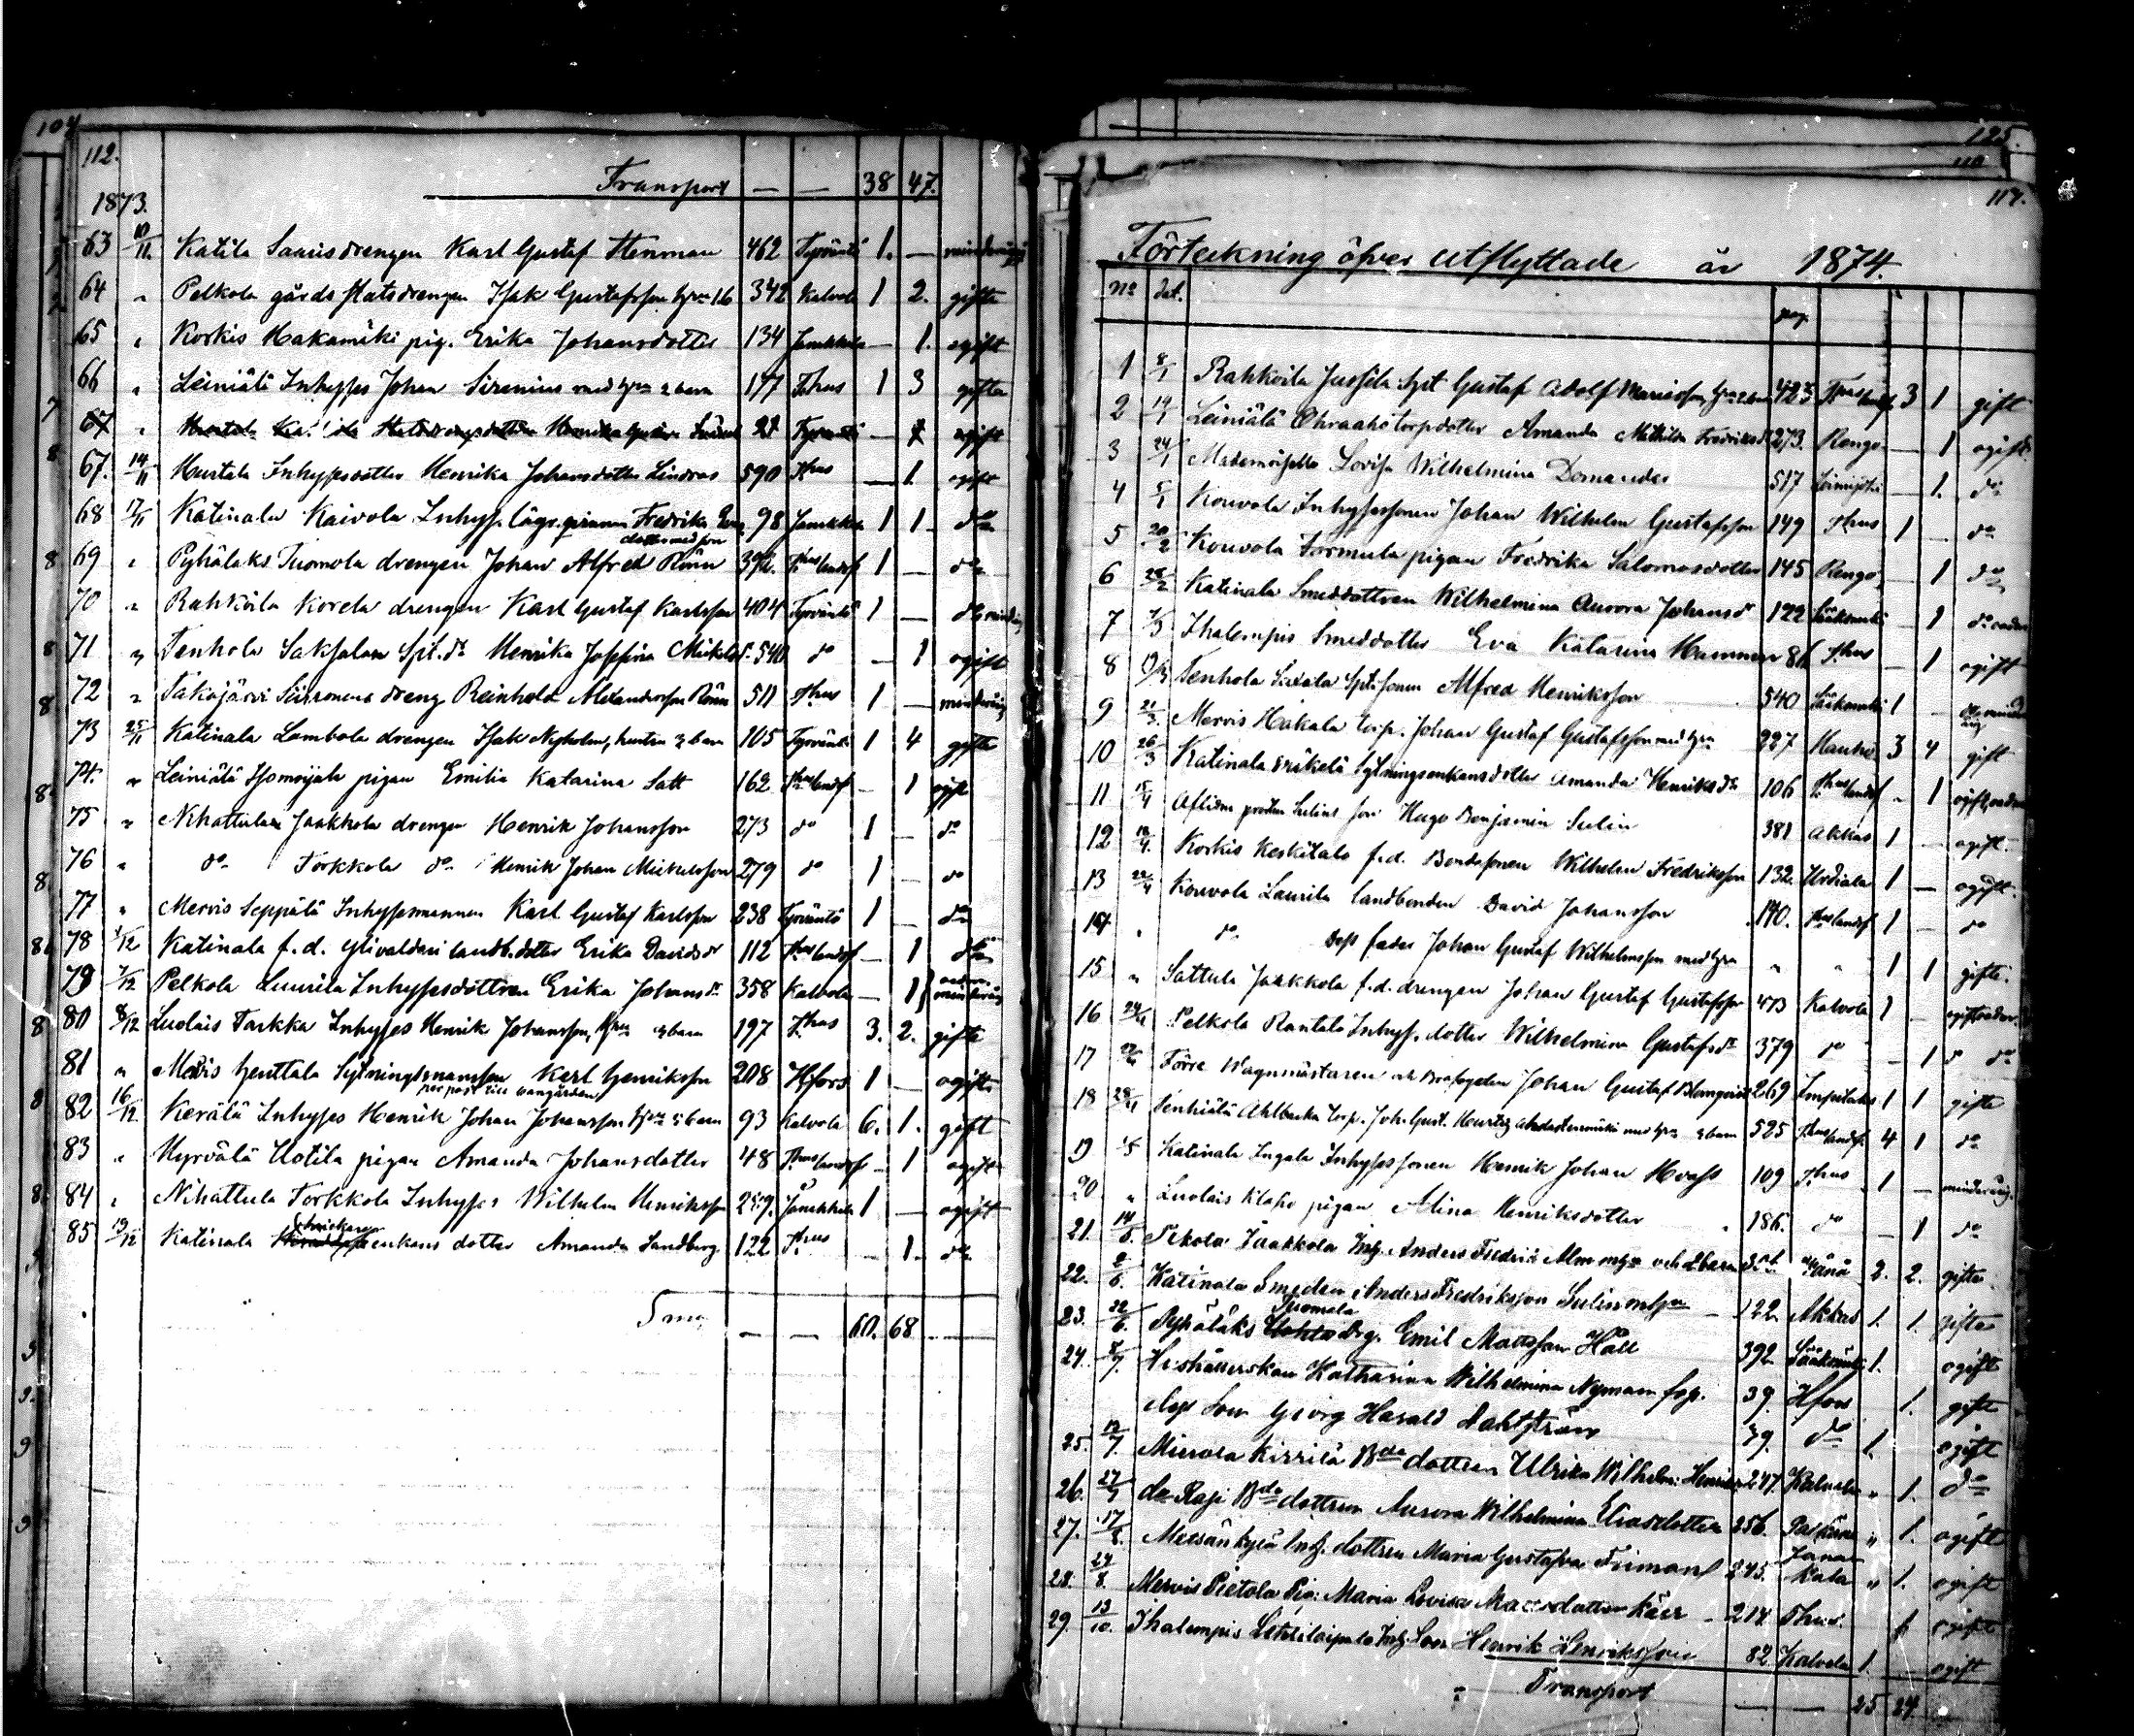 104
112.
Transport — — 38 47.
1873.
63 10/11. Katila Saaris drengen Karl Gustaf Stenman 462 Tyrväntö 1. —
64 " Pelkola gårds statsdrengen Isak Gustafsson 342 Kalvola 1 2. gifta
65 " Korkis Hakamäki pig. Erika Johansdotter 134 Janakkala — 1. ogift
66 " Leiniälä Inhyses Johan Sirenius med hru 2 barn 177 T:hus 1 3 gifta
67 " 27 Tyrväntö — 1 ogift
67. 14/11 Hurtala Inhysesdotter Henrika Johansdotter Lindroos 590 T:hus — 1. ogift
68 17/11 Katinala Kaivola Inhyses Fredrika 98 Janakkala 1 1 do
dotter med son
69 " Pyhälaks Tuomola drengen Johan Alfred Rönn 392. T:hus landsf 1 — do
70 " Rahkoila Korela drengen Karl Gustaf Karlsson 404 Tyrväntö 1 — do
71 " Tenhola Saksalan Spt. dr Henrika Josefina Mickelsdr 540 do — 1 ogift
72 " Takajärvi dreng Reinhold Alexandersson Rönn 511 T:hus 1 — minderårig
73 25/11 Katinala Lambola drengen Isak Nyholm, hustru 3 barn 105 Tyrväntö 1 4 gifta
74. " Leiniälä pigan Emilia Katarina Satt 162 T:hus landsf — 1 ogift
75 " Nihattula Jaakkola drengen Henrik Johansson 273 do 1 — do
76 " do Torkkola do Henrik Johan Mickelsson 279 do 1 — do
77 " Mervis Seppälä Inhysesmannen Karl Gustaf Karlsson 238 Tyrväntö 1 — do
78 1/12 Katinala f.d. landb. dotter Erika Davidsdr 112 T:hus landsf — 1 do
79 7/12 Pelkola Luurila Inhysesdottren Erika Johansdr 358 Kalvola — 1 minderårig
80 8/12 Luolais Tarkka Inhyses Henrik Johansson, hru 3 barn 197 T:hus 3. 2. gifta
81 " Mervis Henttala Sytningsmansson Karl Henriksson 208 H:fors 1 — ogift
82 16/12 Kerälä Inhyses Henrik Johan Johansson hru 5 barn 93 Kalvola 6. 1. gift
83 " Myrvälä Uotila pigan Amanda Johansdotter 48 T:hus landsf — 1 ogift
84 " Nihattula Torkkola Inhyses Wilhelm Henriksson 259. Janakkala 1 — ogift
85 19/12 Katinala enkans dotter Amanda Sandberg 122 T:hus — 1. do
Sma — — 60. 68 — —
125.
117.
Förteckning öfver utflyttade år 1874.
No dat. pag.
1 8/1 Rahkoila Jussila Spt Gustaf Adolf Mariasson, hru 2 barn 423 T:hus landsf 3 1 gift
2 19/1 Leiniälä Ohraaho torpdotter Amanda Mathilda Fredriksdr 273. Rengo — 1 ogift
3 24/1 Mademoiselle Lovisa Wilhelmina Domander 517 Loimijoki — 1. do
4 5/1 Kouvola Inhysessonen Johan Wilhelm Gustafsson 149 T:hus 1 — do
5 20/2 Kouvola Tormula pigan Fredrika Salomosdotter 145 Rengo — 1 do
6 28/2 Katinala Smeddottren Wilhelmina Aurora Johansdr 122 Sääksmäki — 1 do
7 7/3 Ihalempis Smeddotter Eva Katarina Hammar 86 T:hus — 1 ogift
8 19/3 Tenhola Saxala Spt. sonen Alfred Henriksson 540 Sääksmäki 1 —
9 21/3 Mervis Hakala torp. Johan Gustaf Gustafsson med hru 227 Hauho 3 4 gift
10 26/3 Katinala Erikelä Sytningsenkansdotter Amanda Henriksdr 106 T:hus landsf — 1
11 15/4 Aflidne Sulins son Hugo Benjamin Sulin 381 Akkas 1 — ogift.
12 18/4 Korkis Keskitalo f.d. Bondesonen Wilhelm Fredriksson 132. Urdiala 1 — ogift.
13 22/4 Kouvola Laurila landbonden David Johansson 140. T:hus landsf 1 — do
14 " do Dess fader Johan Gustaf Wilhelmsson med hru " " 1 1 gifta
15 " Sattula Jaakkola f.d. drengen Johan Gustaf Gustafsson 473 Kalvola 1 —
16 24/4 Pelkola Rantala Inhys. dotter Wilhelmina Gustafsdr 379 do — 1 do
17 Förre Wagnmästaren och Johan Gustaf Blomqvist 269 Impilaks 1 1 gifta
18 28/4 Tenhiälä Ahlbacka torp. Joh. Gust. med hru 3 barn 525 T:hus landsf 4 1 do
19 1/5 Katinala Ingala Inhysessonen Henrik Johan Hvass 109 T:hus 1 — minderårig
20 " Luolais Klapo pigan Alina Henriksdotter 186. do — 1 do
21. 14/5. Pekola Jaakkola Inh. Anders Fredrik Alm m hru och 2 barn 2. 2. gifta
22. 2/6. Katinala Smeden Anders Fredriksson Sulin m hru — 122. Akkas 1. 1. gifta
23. 22/6. Pyhälaks Tuomola Drg. Emil Mattsson Häll 392. Sääksmäki 1. ogift
24. 8/7. Hushållerskan Katharina Wilhelmina Nyman 39. H:fors 1. gift
dess Son Georg Harald Dahlström 39. do 1. ogift
25. 12/7. Mierola Kirrilä Bde dottren Ulrika Wilhelm. Henriksdr 247. Kalvola " 1. do
26. 27/7 do Rapi Bde dottren Aurora Wilhelmina Eliasdotter 256. " 1. ogift
27. 17/8. Metsänkylä Inh. dottren Maria Gustafva Friman 245. Janakkala " 1. ogift
28. 24/8. Mervis Pietola Pig. Maria Lovisa Mattsdotter Käer 214. T:hus 1 ogift
29. 13/10. Ihalempis Inh. Son Henrik Henriksson 82 Kalvola 1. ogift
Transport — — 25 24